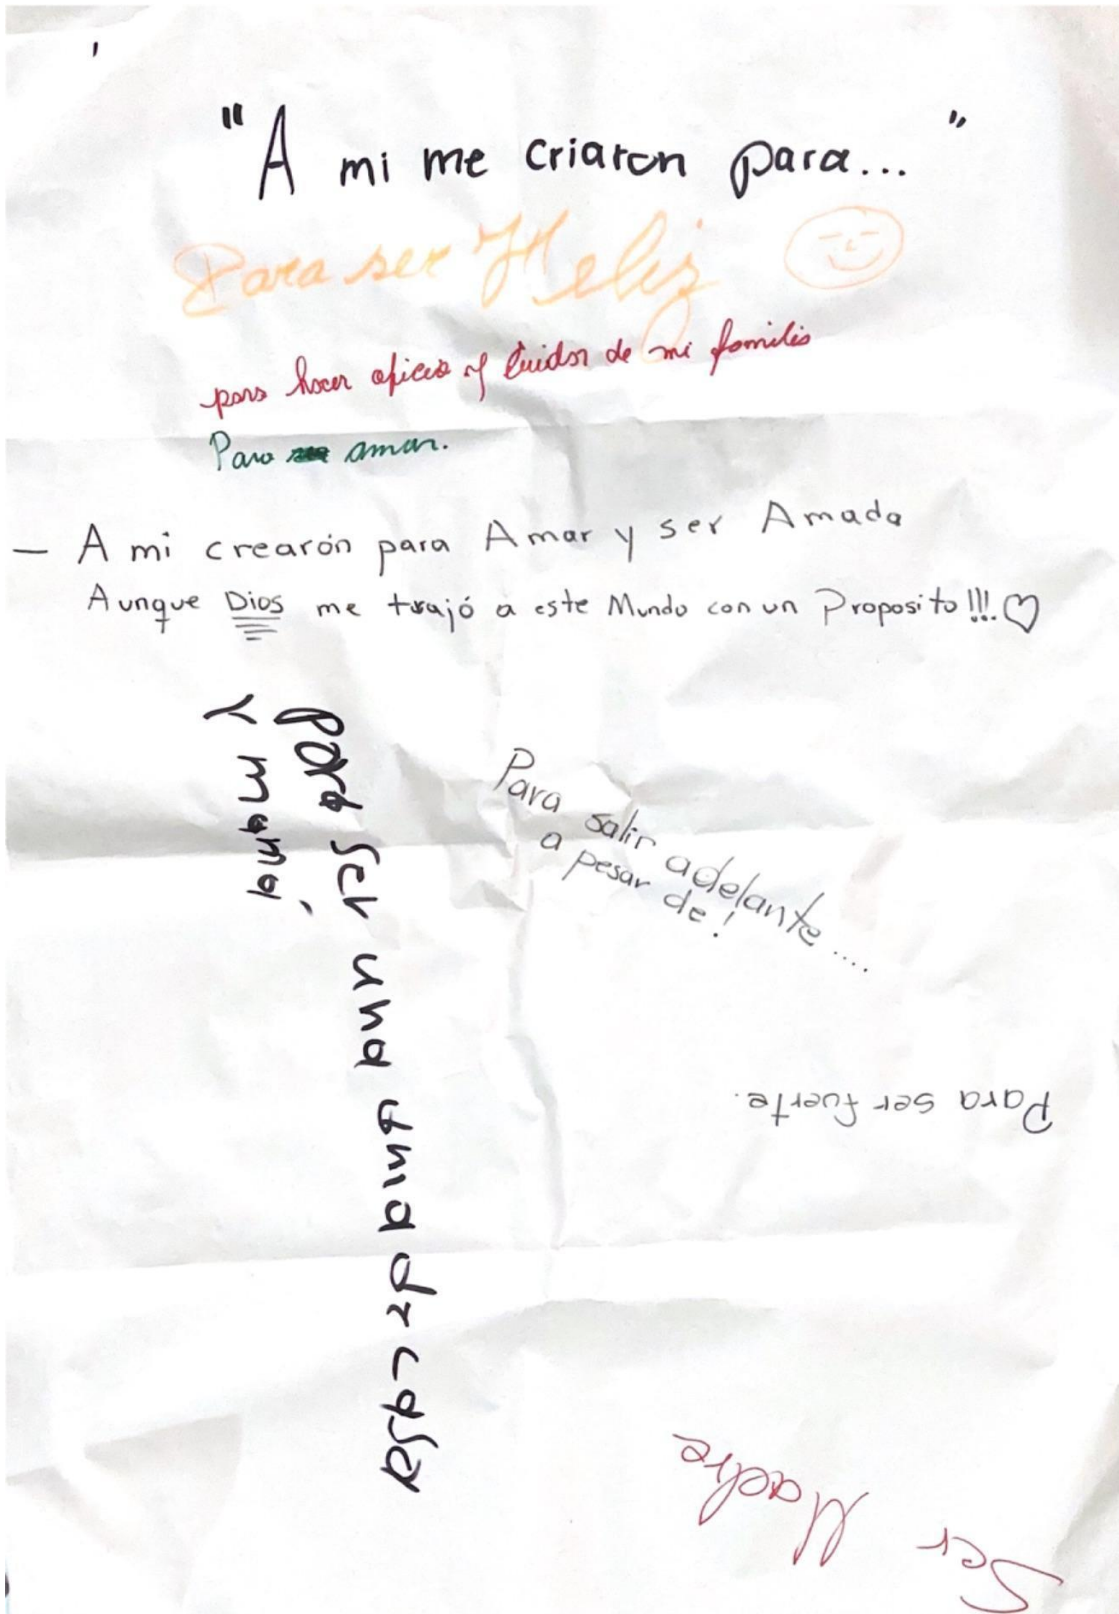 "A mi me criaron para... "
Para ser Feliz
para hacer oficio y cuidar de mi familia
Para amar.
- A mi crearón para Amar y ser Amada
Aunque Dios me trajó a este Mundo con un Proposito!!! ♡
para ser una ama de casa
y mamá
Para salir adelante ....
a pesar de!
Para ser fuerte.
Ser Madre